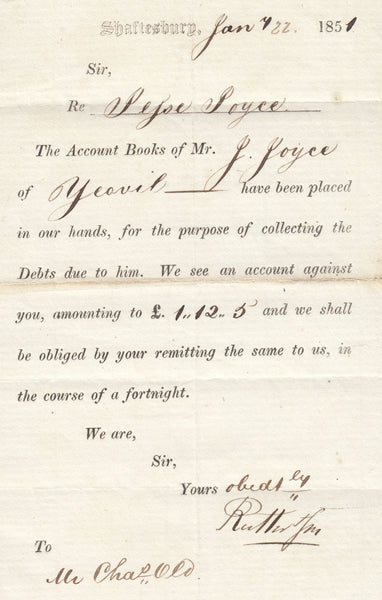 Shaftesbury, Jany 22. 1851
Sir,
Re Jesse Joyce.
The Account Books of Mr. J. Joyce
of Yeovil have been placed
in our hands, for the purpose of collecting the
Debts due to him. We see an account against
you, amounting to £. 1,, 12,, 5 and we shall
be obliged by your remitting the same to us, in
the course of a fortnight.
We are,
Sir,
Yours obedtly
To
Mr Chas. Old.